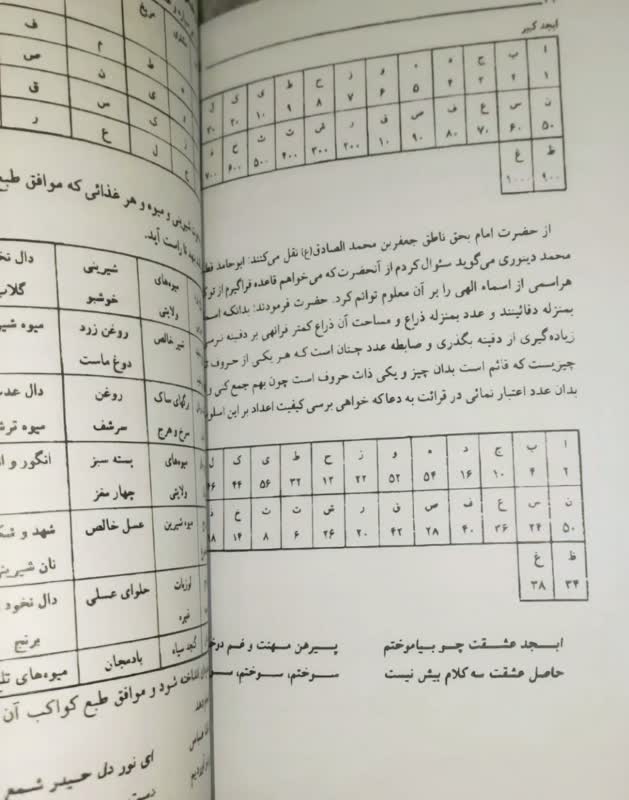 ابجد کبیر
ا ب ج د ه و ز ح ط ی ک ل
۱ ۲ ۳ ۴ ۵ ۶ ۷ ۸ ۹ ۱۰ ۲۰ ۳۰
ن س ع ف ص ق ر ش ت ث خ ذ
۵۰ ۶۰ ۷۰ ۸۰ ۹۰ ۱۰ ۲۰۰ ۳۰۰ ۴۰۰ ۵۰۰ ۶۰۰ ۷۰۰
ظ غ
۹۰۰ ۱۰۰۰
از حضرت امام بحق ناطق جعفربن محمد الصادق(ع) نقل می‌کنند: ابوحامد
محمد دینوری می‌گوید سئوال کردم از آنحضرت که می‌خواهم قاعده فراگیرم از
هراسمی از اسماء الهی را بر آن معلوم توانم کرد. حضرت فرمودند: بدانکه
بمنزله دفائینند و عدد بمنزله ذراع و مساحت آن ذراع کمتر فرانهی بر دفینه
زیاده‌گیری از دفینه بگذری و ضابطه عدد چنان است که هر یکی از حروف
چیزیست که قائم است بدان چیز و یکی ذات حروف است چون بهم جمع کنی و
بدان عدد اعتبار نمائی در قرائت به دعا که خواهی برسی کیفیت اعداد بر این
ا ب ج د ه و ز ح ط ی ک ل
۲ ۴ ۱۰ ۱۶ ۵۴ ۵۲ ۲۲ ۱۲ ۳۲ ۵۶ ۴۴ ۴۶
ن س ع ف ص ق ر ش ت ث خ
۵۰ ۲۴ ۳۶ ۴۰ ۲۸ ۴۲ ۲۰ ۲۶ ۶ ۸ ۱۴ ۱۸
ظ غ
۳۴ ۳۸
ابجد عشقت چو بیاموختم پیرهن مهنت و غم
حاصل عشقت سه کلام بیش نیست سوختم، سوختم،
مریخ
ط م ف
ی ن ص
ک س ق
ل ع ر
شیرینی و میوه و هر غذائی که موافق طبع
راست آید.
میوه‌های شیرینی دال
ولایتی خوشبو
شیر خالص روغن زرد میوه
دوغ ماست
برگهای ساک روغن دال
سرخ و هرج سرشف میوه
میوه‌های پسته سبز انگور و
ولایتی چهار مغز
میوه شیرین عسل خالص شهد و
نان
لوزیات حلوای عسلی دال نخود
غیره برنج
کنجد سیاه بادمجان میوه‌های
شود و موافق طبع کواکب آن
ای نور دل حیدر شمع